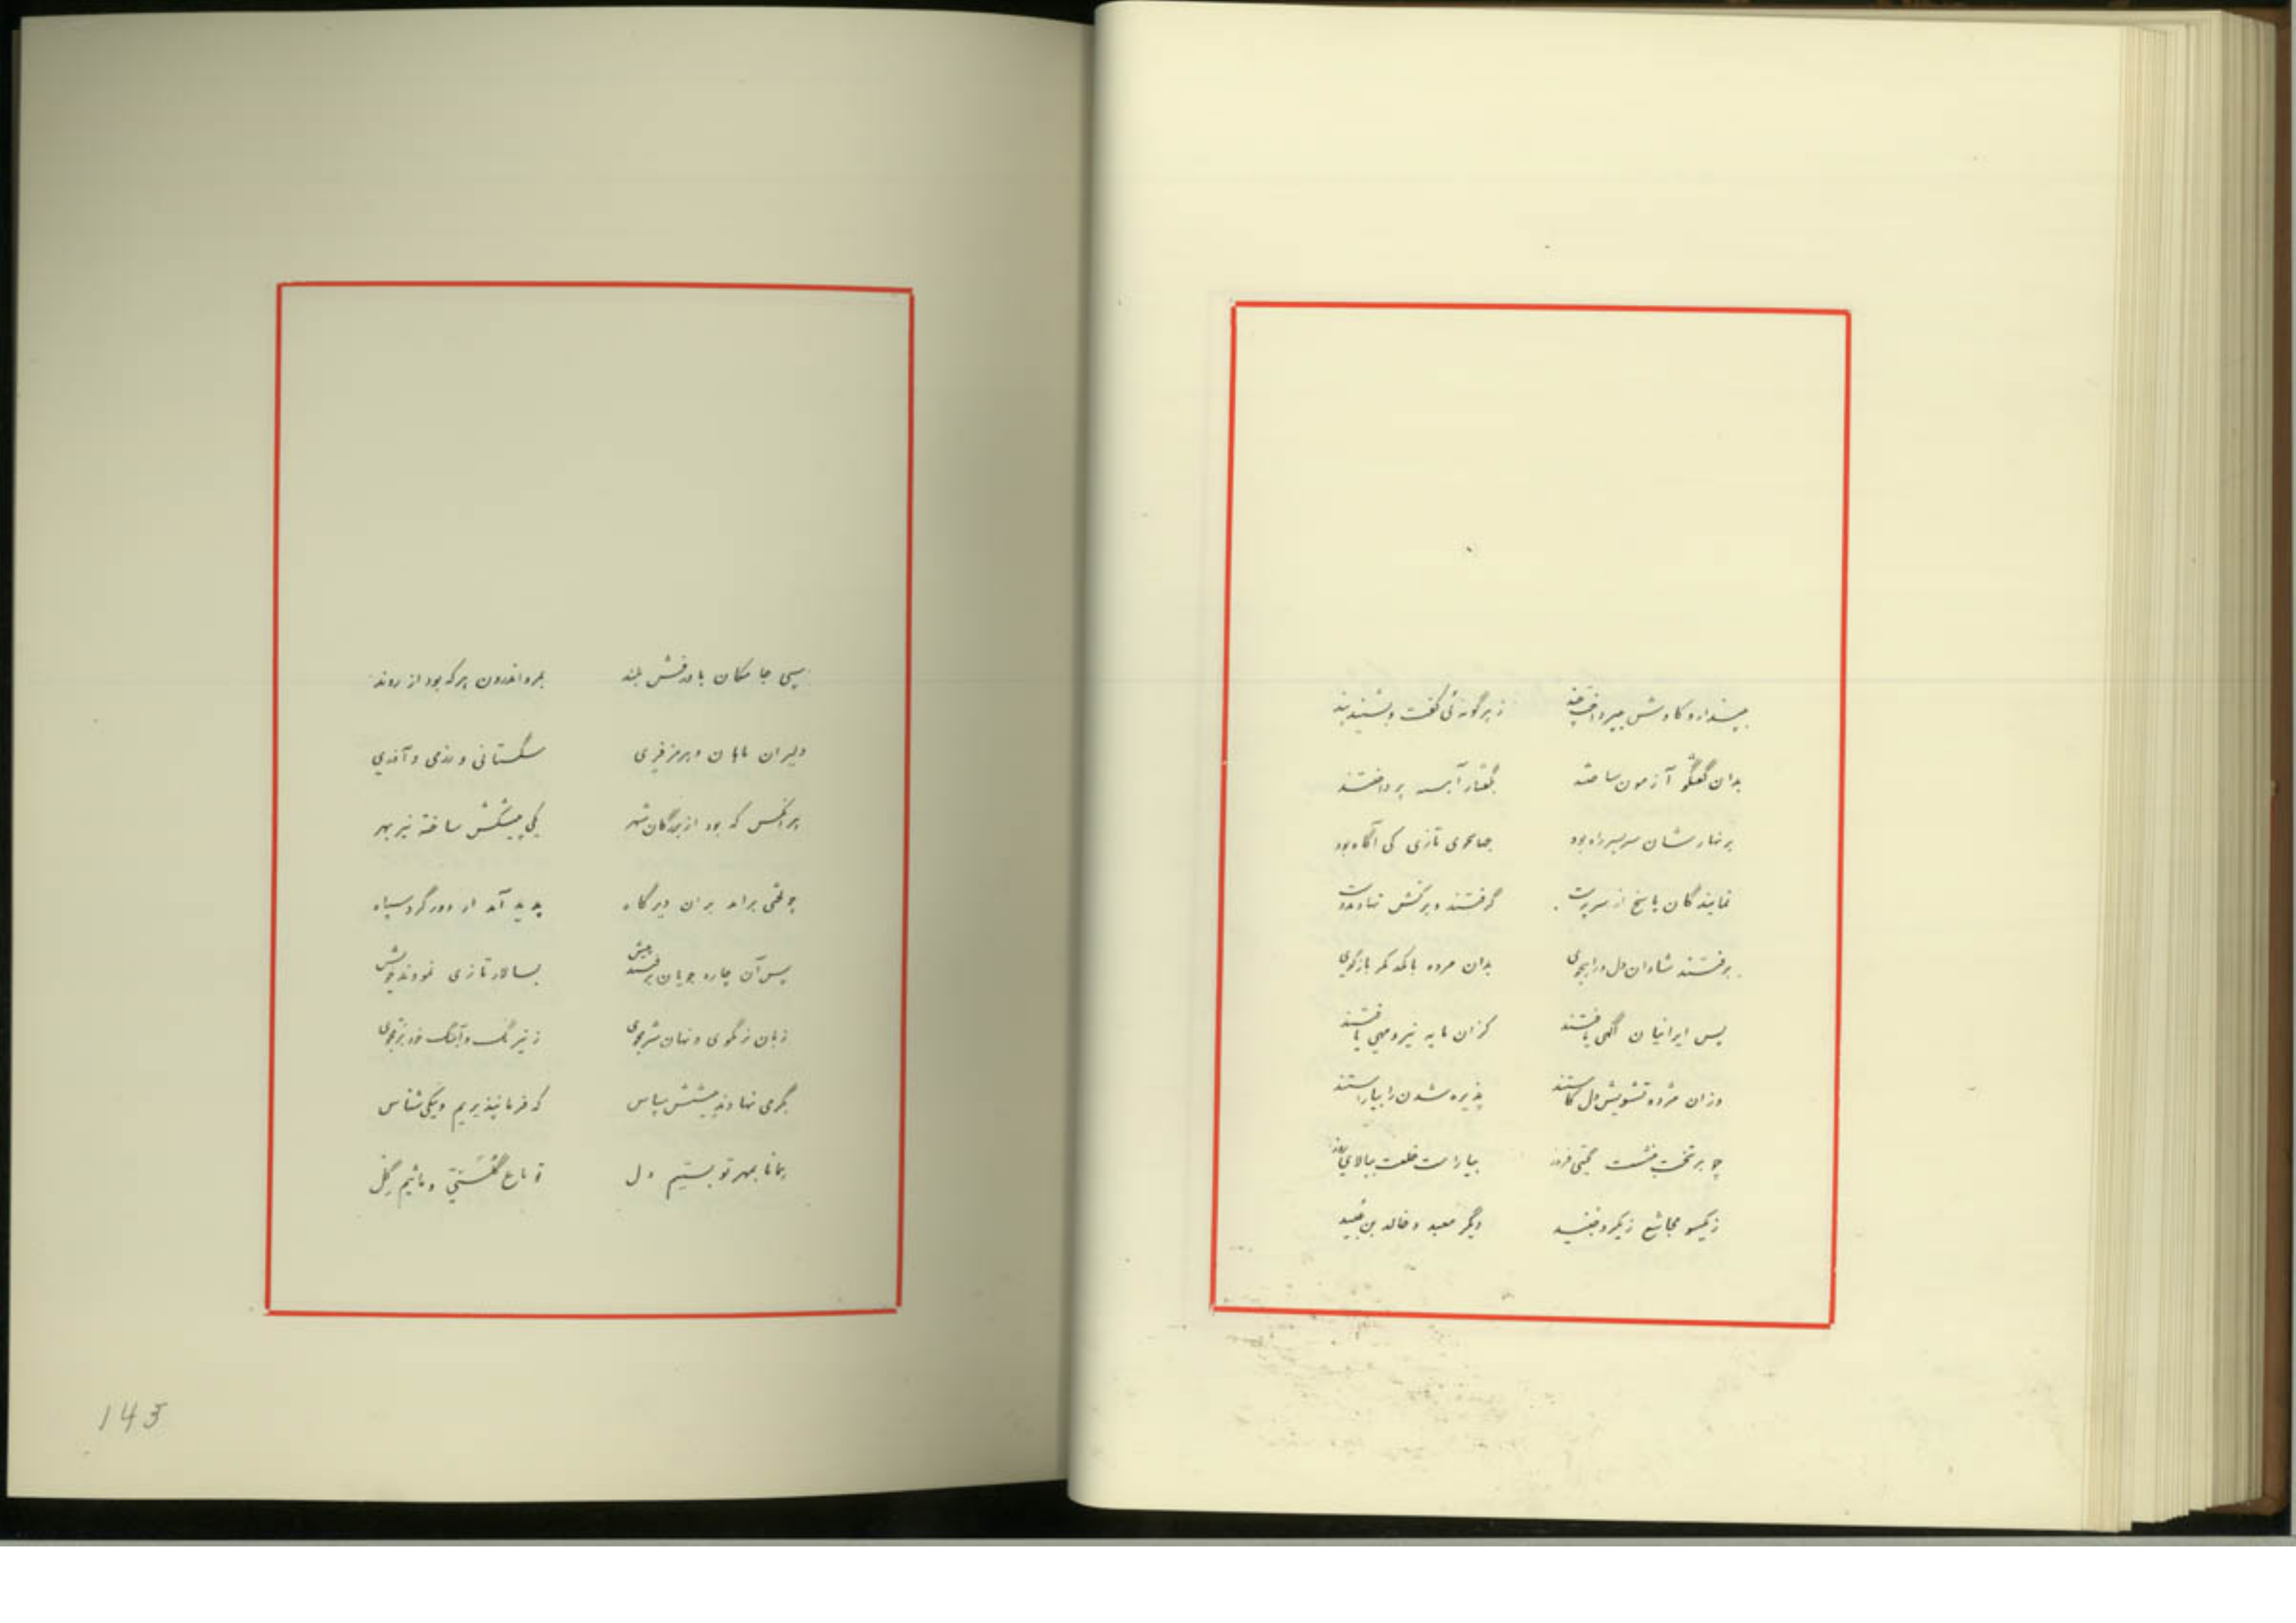 بپندار و کاوش بپرداختند ز هر گونه‌ئی گفت و بشنیدند
بدان گفتگو آزمون ساختند بگفتار آیین پرداختند
بر نهارشان سربسر راه بود جهانجوی تازی کی آگاه بود
نمایندگان پاسخ از سرپرست گرفتند و برکش نهادند دست
برفتند شادان دل و راهجوی بدان مرده بازگوی
پس ایرانیان آگهی یافتند کزان مایه نیرو همی یافتند
وزان مژده تشویش دل کاستند پذیره شدن را بیاراستند
چو بر تخت بنشست گیتی فروز بیاراست خلعت ببالای روز
ز یکسو مجاشع ز یکرو دگر معبد و خالد بن
سپی جامگان با درفش بلند بمرو اندرون هر که بود از روند
دلیران ماهان و هرمز فری سگستانی و رزمی و آذری
هر آنکس که بود از بزرگان شهر یکی پیشکش ساخته نیز بهر
چو لختی براند بران دیرگاه پدید آمد از دور گرد سپاه
پس آن چاره جویان برفتند پیش بسالار تازی نمودند خویش
زبان نرمگوی و نهان شرجوی ز نیرنگ و آهنگ خود
بگرمی نهادند پیشش سپاس که فرمانپذیریم و نیکی شناس
همانا بمهر تو بستیم دل تو باغ گلستی و مائیم گل
143